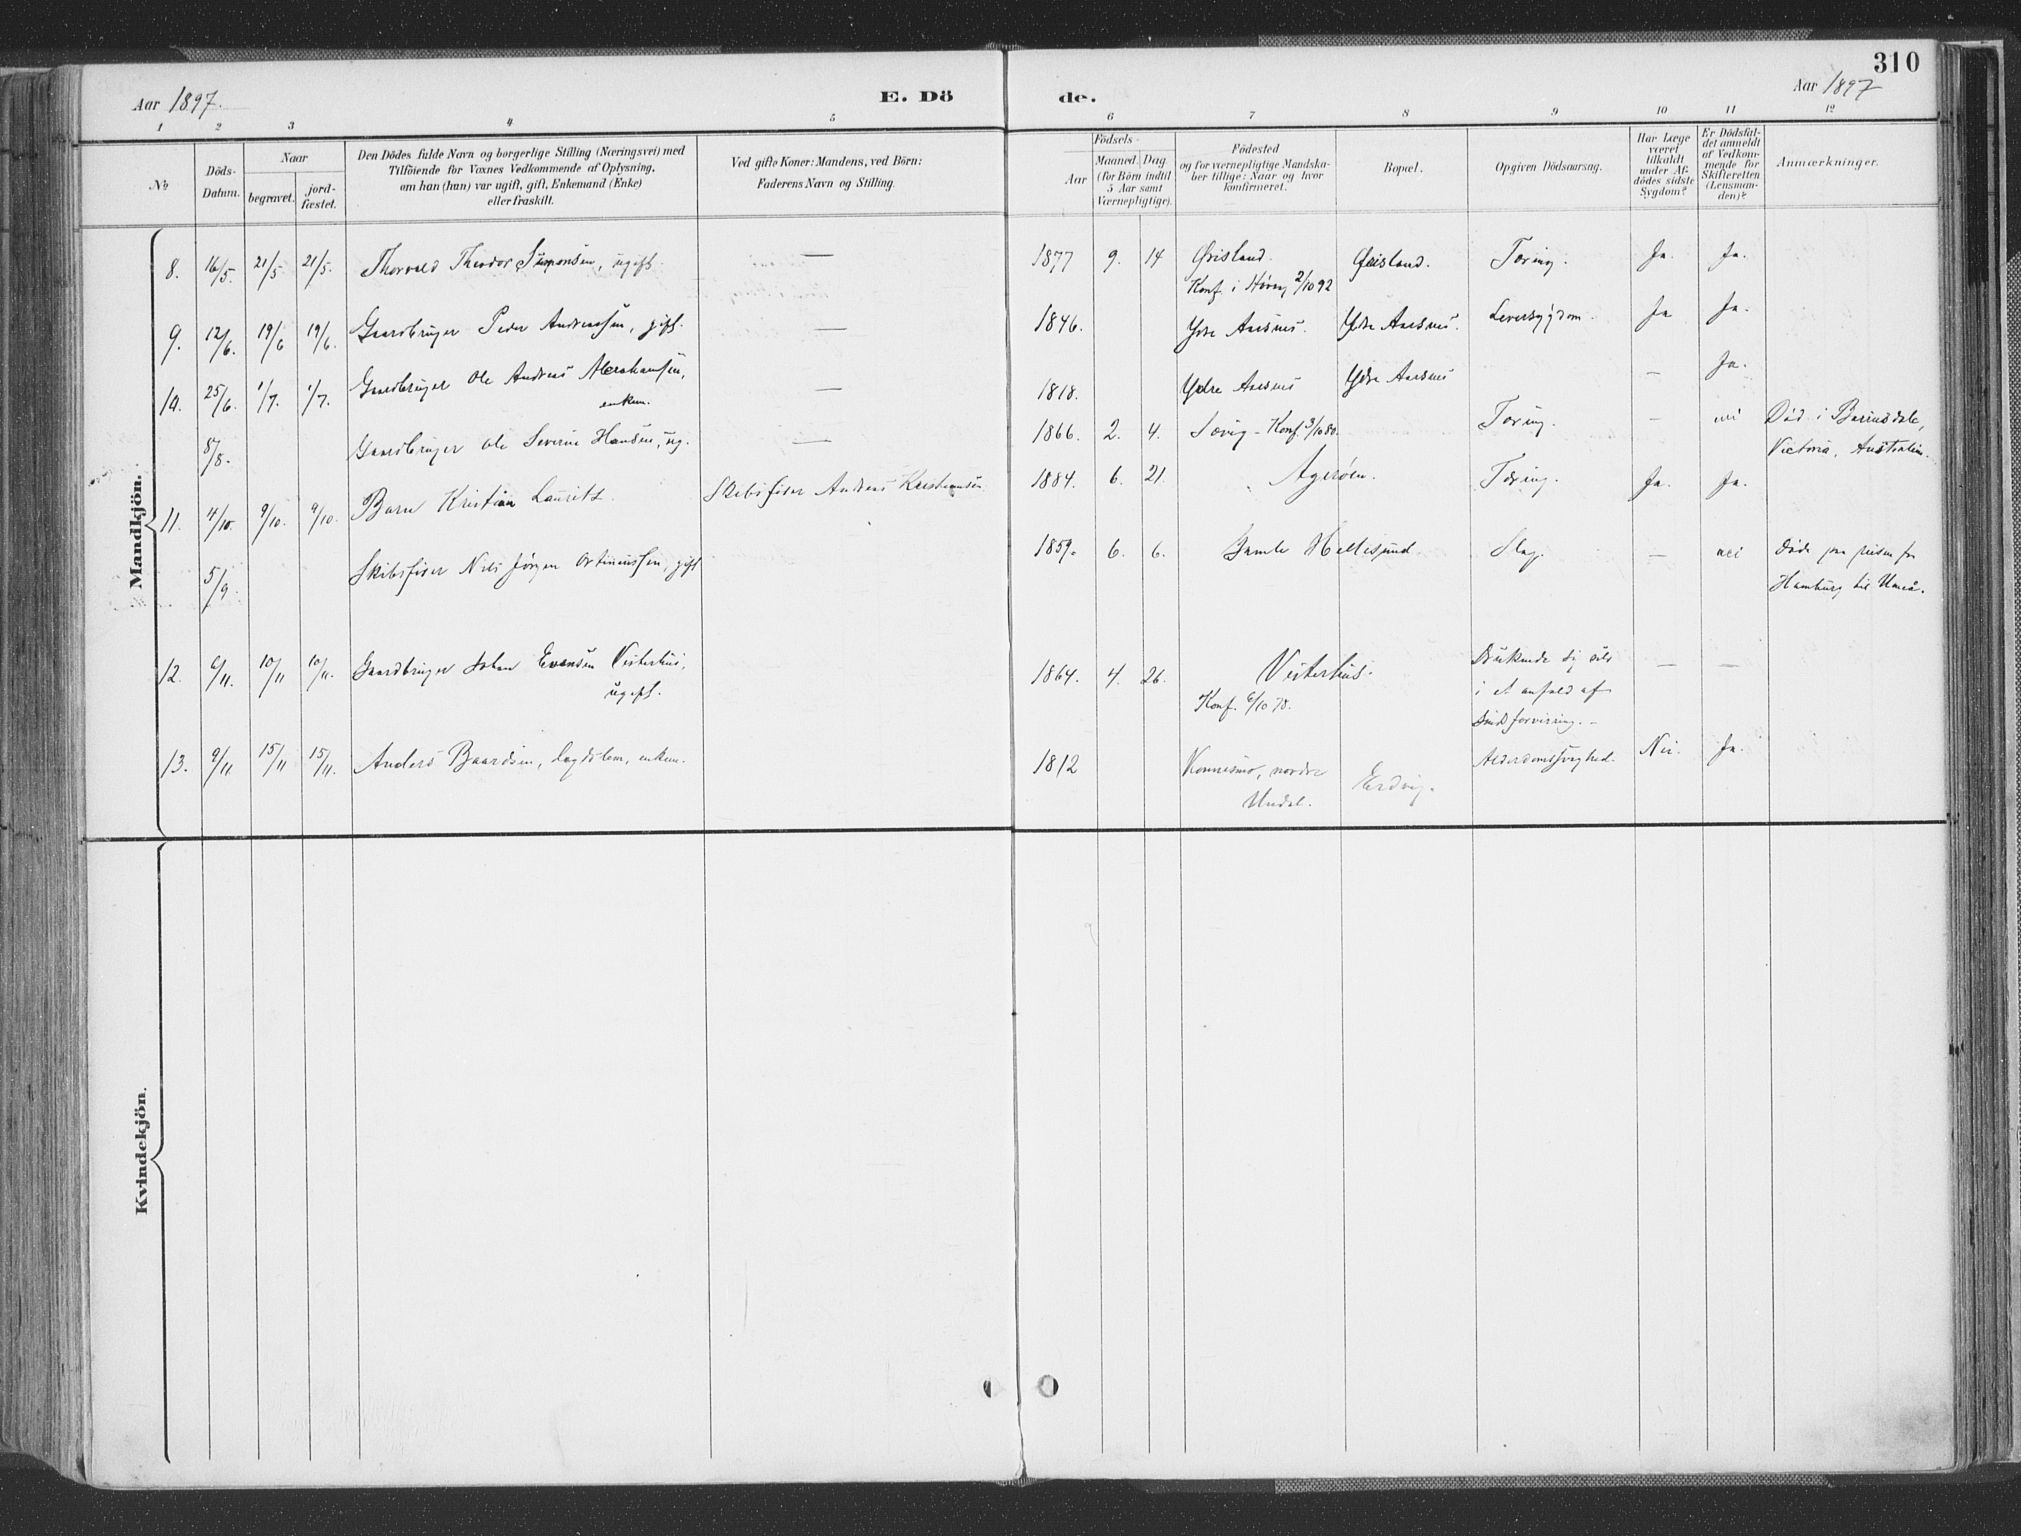 310
Aar 1897.
E. Dö
de.
Aar 1897
1 2 3 4 5 6 7 8 9 10 11 12
№
Döds-
Datum.
Naar
begravet.
jord-
fæstet.
Den Dödes fulde Navn og borgerlige Stilling (Næringsvei) med
Tilföiende for Voxnes Vedkommende af Oplysning,
om han (hun) var ugift, gift, Enkemand (Enke)
eller fraskilt.
Ved gifte Koner: Mandens, ved Börn:
Faderens Navn og Stilling.
Födsels-
Aar
Maaned. Dag
(for Börn indtil
5 Aar samt
Værnepligtige).
Födested
og for værnepligtige Mandska-
ber tillige: Naar og hvor
konfirmeret.
Bopæl.
Opgiven Dödsaarsag.
Har Læge
været
tilkaldt
under Af-
dödes sidste
Sygdom?
Er Dödsfal-
det anmeldt
af Vedkom-
mende for
Skifteretten
(Lensman-
den)?
Anmærkninger.
Mandkjön.
8. 16/5. 21/5 21/5. Thorvald Theodor Simonsen, ugift. — 1877 9. 14 Øvisland. Øvisland. Tæring. Ja. Ja.
Konf. i 2/10 92
9. 12/6. 19/6 19/6. Gaardbruger Peder Andreassen, gift. — 1846. Ydre Aarsnes. Ydre Aarsnes. Leversygdom. Ja Ja.
10. 25/6. 1/7. 1/7. Gaardbruger Ole Andreas Abrahamsen, — 1818. Ydre Aarsnes Ydre Aarsnes — Ja.
enkem.
8/8. Gaardbruger Ole Severin Hansen, ug. — 1866. 2. 4. Sævig - Konf. 3/10 80. Tæring. — nei Död i Bairnsdale,
Victoria, Australien.
11. 4/10. 9/10. 9/10. Barn Kristian Laurits. Skibsfører Andreas Kristiansen 1884. 6. 21. Agerøen. Tæring. Ja. Ja.
5/9. Skibsfører Nils Jørgen Ortinussen, gift 1859. 6. 6. Gamle Hellesund Slag. — nei Døde paa reisen fra
Hamburg til Umeå.
12. 6/11. 10/11 10/11. Gaardbruger Johan Evensen Vesterhus, 1864. 4. 26. Vesterhus. Druknede sig selv — —
ugift. Konf. 6/10 78. i et anfald af
sindsforvirring. -
13. 9/11 15/11 15/11. Anders Baardsen, lægdslem, enkem. 1812 Konnesmo, nordre Eedvig. Alderdomssvaghed. Nei. Ja.
Undal.
Kvindekjön.